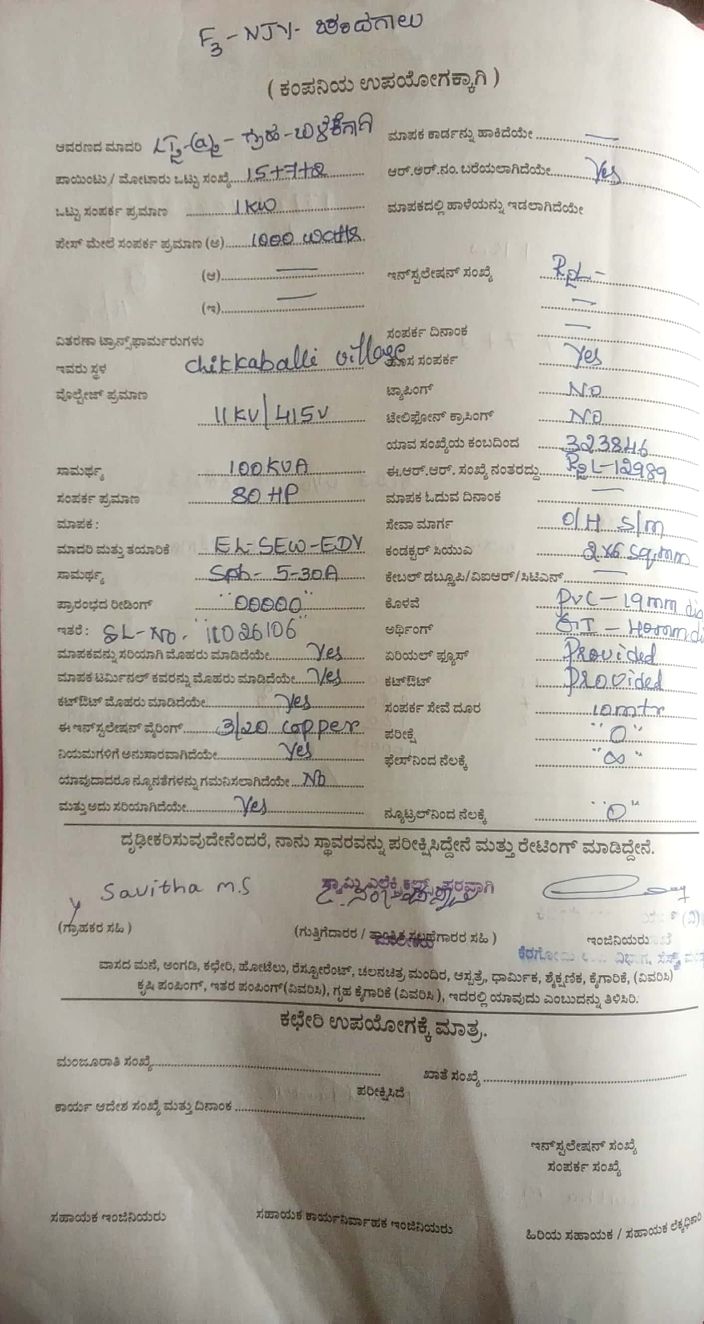 F3-NJY- ಚಂದಗಾಲು
( ಕಂಪನಿಯ ಉಪಯೋಗಕ್ಕಾಗಿ )
ಆವರಣದ ಮಾದರಿ LT2-(a)2 - ಗೃಹ - ಬಳಕೆಗಾಗಿ
ಮಾಪಕ ಕಾರ್ಡನ್ನು ಹಾಕಿದೆಯೇ —
ಪಾಯಿಂಟು / ಮೋಟಾರು ಒಟ್ಟು ಸಂಖ್ಯೆ 15+7+2
ಆರ್.ಆರ್.ನಂ. ಬರೆಯಲಾಗಿದೆಯೇ Yes
ಒಟ್ಟು ಸಂಪರ್ಕ ಪ್ರಮಾಣ 1KW
ಮಾಪಕದಲ್ಲಿ ಹಾಳೆಯನ್ನು ಇಡಲಾಗಿದೆಯೇ
ಪೇಸ್ ಮೇಲೆ ಸಂಪರ್ಕ ಪ್ರಮಾಣ (ಅ) 1000 watts
(ಆ) —
ಇನ್‌ಸ್ಟಲೇಷನ್ ಸಂಖ್ಯೆ RpL-
(ಇ) —
—
ಸಂಪರ್ಕ ದಿನಾಂಕ —
ವಿತರಣಾ ಟ್ರಾನ್ಸ್‌ಫಾರ್ಮರುಗಳು
ಇವರು ಸ್ಥಳ chikkaballi village
ಹೊಸ ಸಂಪರ್ಕ Yes
ವೊಲ್ಟೇಜ್ ಪ್ರಮಾಣ
ಟ್ಯಾಪಿಂಗ್ NO
11KV/415V
ಟೇಲಿಫೋನ್ ಕ್ರಾಸಿಂಗ್ NO
ಯಾವ ಸಂಖ್ಯೆಯ ಕಂಬದಿಂದ 323846
ಸಾಮರ್ಥ್ಯ 100KVA
ಈ.ಆರ್.ಆರ್. ಸಂಖ್ಯೆ ನಂತರದ್ದು RpL-12989
ಸಂಪರ್ಕ ಪ್ರಮಾಣ 80 HP
ಮಾಪಕ ಓದುವ ದಿನಾಂಕ —
ಮಾಪಕ :
ಸೇವಾ ಮಾರ್ಗ O/H S/m
ಮಾದರಿ ಮತ್ತು ತಯಾರಿಕೆ EL-SEW-EDY
ಕಂಡಕ್ಟರ್ ಸಿಯುಎ 2x6 sq.mm
ಸಾಮರ್ಥ್ಯ Sph- 5-30A
ಕೇಬಲ್ ಡಬ್ಲೂಪಿ/ವಿಐಆರ್/ಸಿಟಿಎಸ್ —
ಪ್ರಾರಂಭದ ರೀಡಿಂಗ್ "00000"
ಕೊಳವೆ PVC-19mm dia
ಇತರೆ : SL-No. "11026106"
ಅರ್ಥಿಂಗ್ GI - 40mm di
ಮಾಪಕವನ್ನು ಸರಿಯಾಗಿ ಮೊಹರು ಮಾಡಿದೆಯೇ Yes
ಏರಿಯಲ್ ಫ್ಯೂಸ್ Provided
ಮಾಪಕ ಟರ್ಮಿನಲ್ ಕವರನ್ನು ಮೊಹರು ಮಾಡಿದೆಯೇ Yes
ಕಟ್‌ಔಟ್ provided
ಕಟ್‌ಔಟ್ ಮೊಹರು ಮಾಡಿದೆಯೇ Yes
ಸಂಪರ್ಕ ಸೇವೆ ದೂರ 10mtr
ಈ ಇನ್‌ಸ್ಟಲೇಷನ್ ವೈರಿಂಗ್ 3/20 copper
ಪರೀಕ್ಷೆ "O"
ನಿಯಮಗಳಿಗೆ ಅನುಸಾರವಾಗಿದೆಯೇ Yes
ಫೇಸ್‌ನಿಂದ ನೆಲಕ್ಕೆ "∞"
ಯಾವುದಾದರೂ ನ್ಯೂನತೆಗಳನ್ನು ಗಮನಿಸಲಾಗಿದೆಯೇ No
ಮತ್ತು ಅದು ಸರಿಯಾಗಿದೆಯೇ Yes
ನ್ಯೂಟ್ರಲ್‌ನಿಂದ ನೆಲಕ್ಕೆ "O"
ದೃಢೀಕರಿಸುವುದೇನೆಂದರೆ, ನಾನು ಸ್ಥಾವರವನ್ನು ಪರೀಕ್ಷಿಸಿದ್ದೇನೆ ಮತ್ತು ರೇಟಿಂಗ್ ಮಾಡಿದ್ದೇನೆ.
Savitha M.S
ಸ್ವಾಮಿ ಎಲೆಕ್ಟ್ರಿಕಲ್ಸ್ ಪರವಾಗಿ
(ಗ್ರಾಹಕರ ಸಹಿ )
(ಗುತ್ತಿಗೆದಾರರ / ತಾಂತ್ರಿಕ ಸಲಹೆಗಾರರ ಸಹಿ )
ಇಂಜಿನಿಯರು
ವಾಸದ ಮನೆ, ಅಂಗಡಿ, ಕಛೇರಿ, ಹೋಟೆಲು, ರೆಸ್ಟೋರೆಂಟ್, ಚಲನಚಿತ್ರ ಮಂದಿರ, ಆಸ್ಪತ್ರೆ, ಧಾರ್ಮಿಕ, ಶೈಕ್ಷಣಿಕ, ಕೈಗಾರಿಕೆ, (ವಿವರಿಸಿ)
ಕೃಷಿ ಪಂಪಿಂಗ್, ಇತರ ಪಂಪಿಂಗ್(ವಿವರಿಸಿ), ಗೃಹ ಕೈಗಾರಿಕೆ (ವಿವರಿಸಿ ), ಇದರಲ್ಲಿ ಯಾವುದು ಎಂಬುದನ್ನು ತಿಳಿಸಿರಿ.
ಕಛೇರಿ ಉಪಯೋಗಕ್ಕೆ ಮಾತ್ರ.
ಮಂಜೂರಾತಿ ಸಂಖ್ಯೆ
ಖಾತೆ ಸಂಖ್ಯೆ
ಪರೀಕ್ಷಿಸಿದೆ
ಕಾರ್ಯ ಆದೇಶ ಸಂಖ್ಯೆ ಮತ್ತು ದಿನಾಂಕ
ಇನ್‌ಸ್ಟಲೇಷನ್ ಸಂಖ್ಯೆ
ಸಂಪರ್ಕ ಸಂಖ್ಯೆ
ಸಹಾಯಕ ಇಂಜಿನಿಯರು
ಸಹಾಯಕ ಕಾರ್ಯನಿರ್ವಾಹಕ ಇಂಜಿನಿಯರು
ಹಿರಿಯ ಸಹಾಯಕ / ಸಹಾಯಕ ಲೆಕ್ಕಾಧಿಕಾರಿ